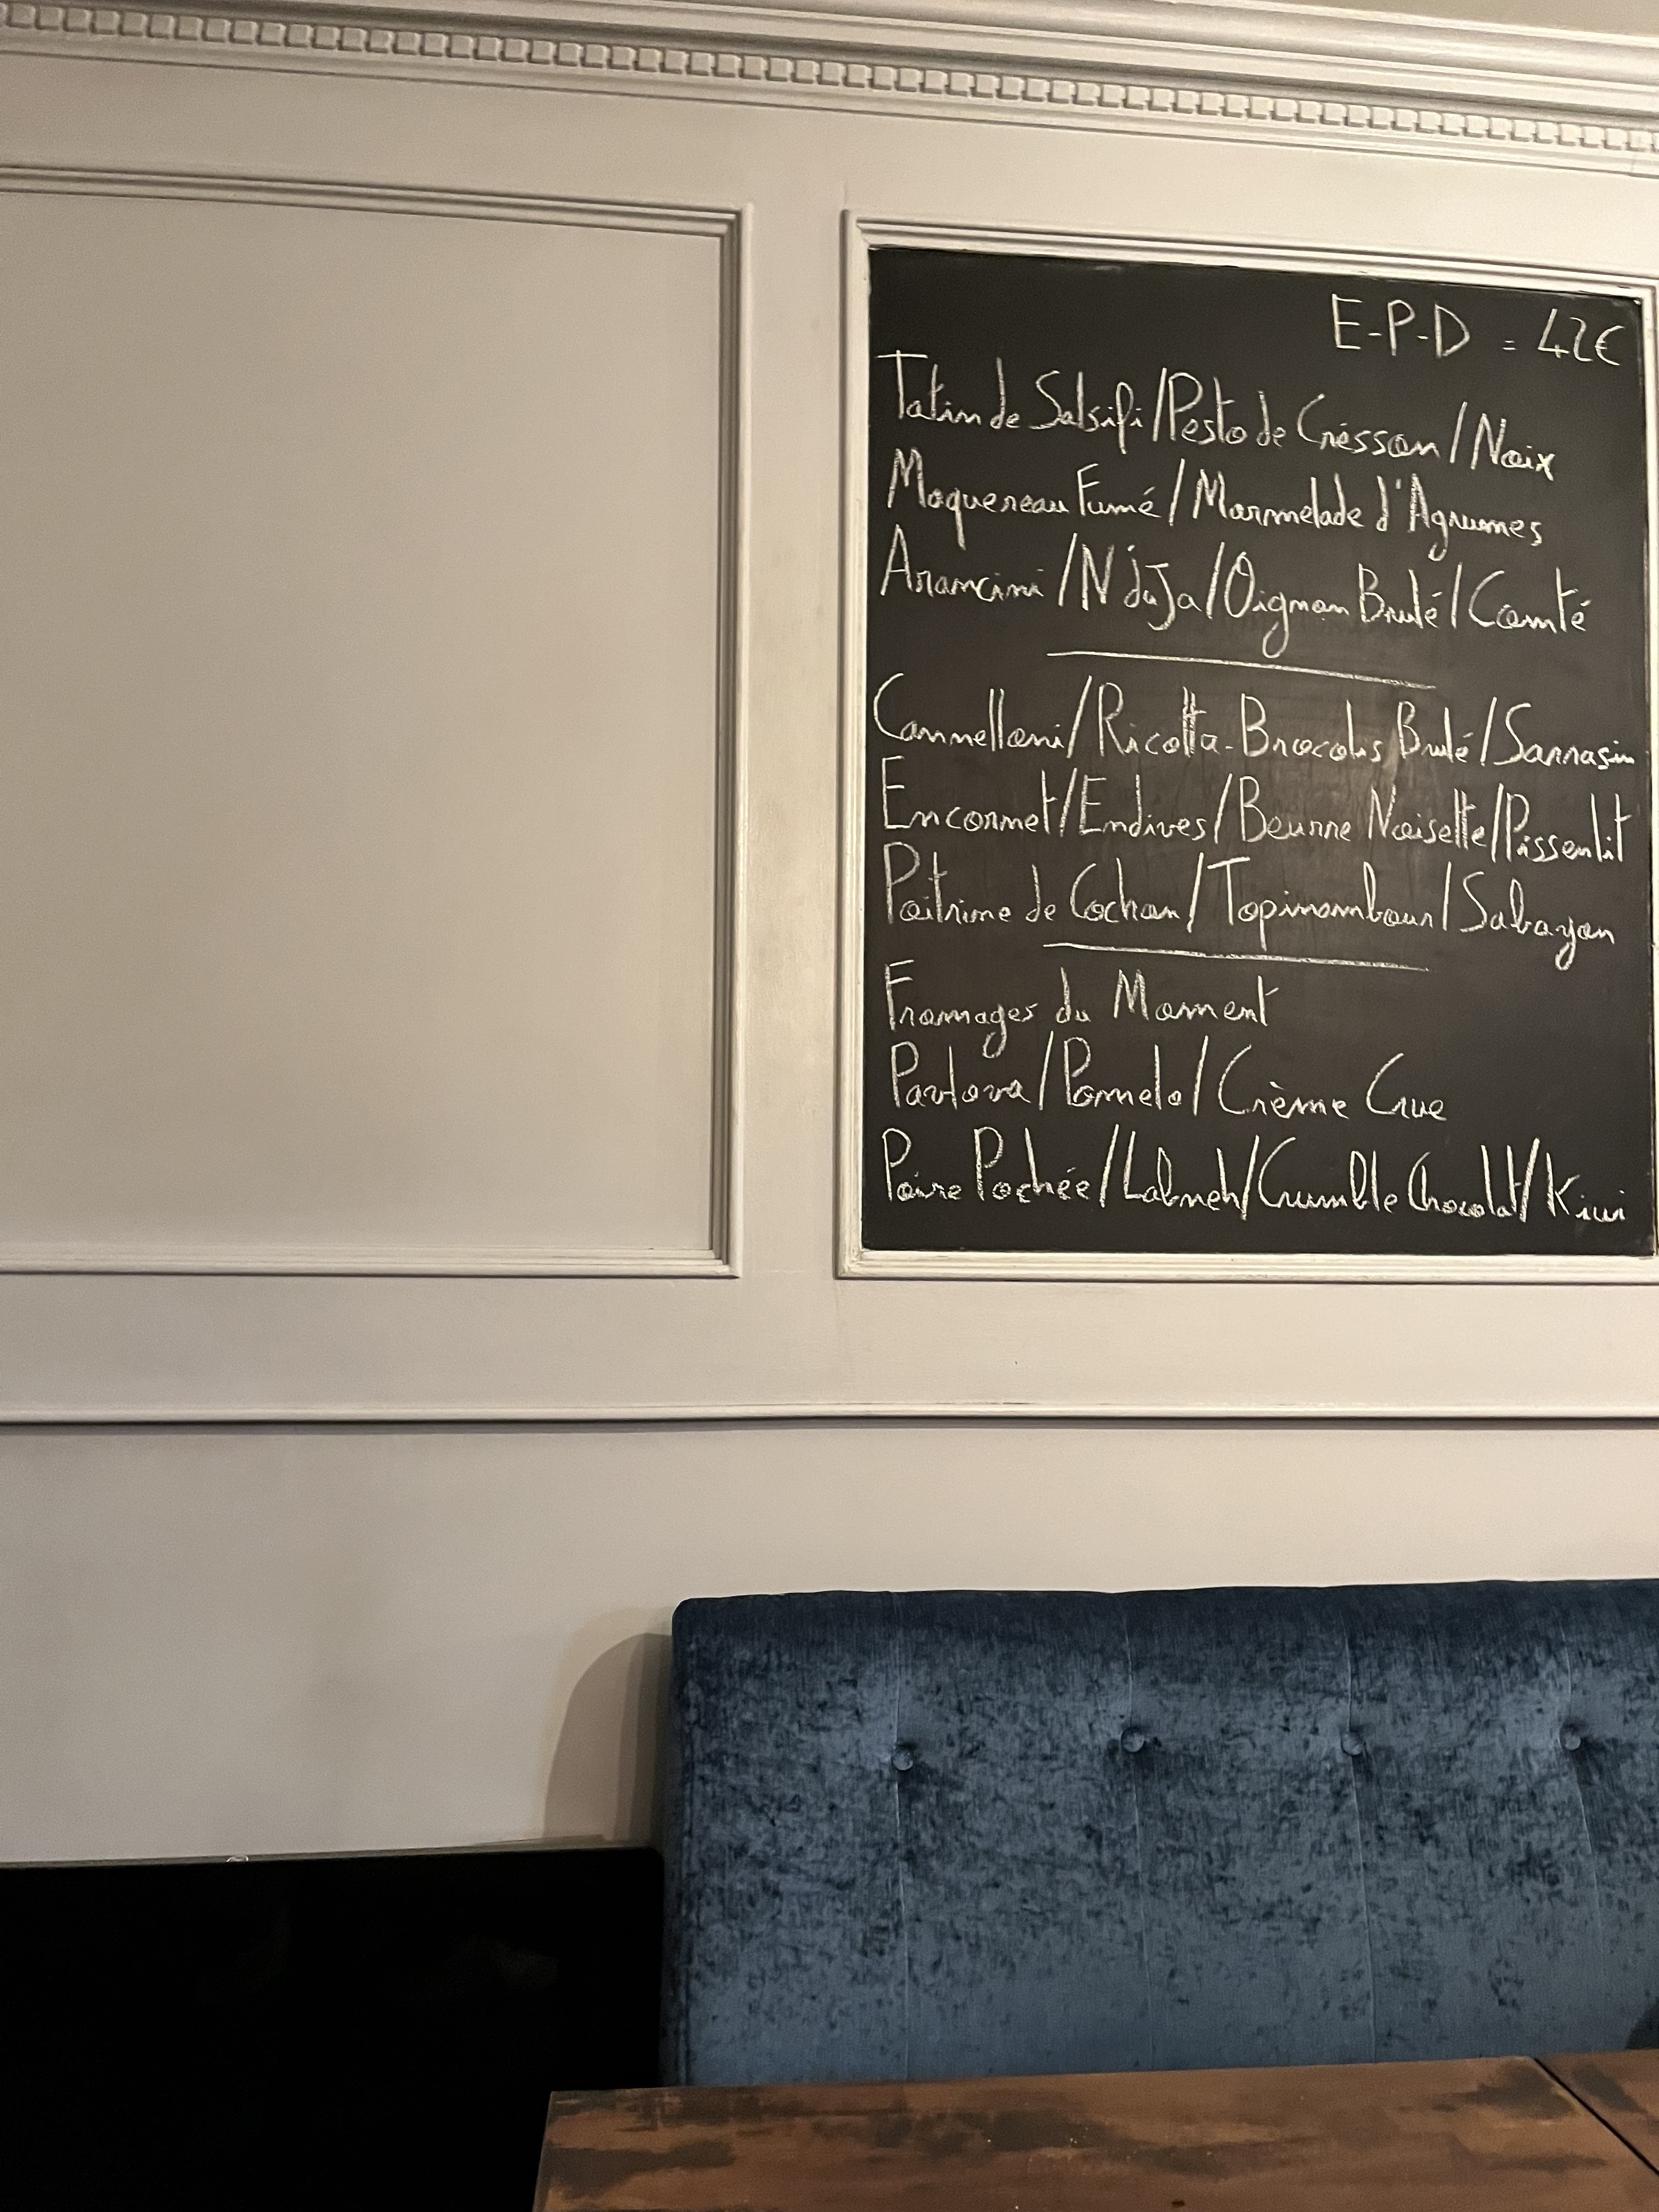 E-P-D = 42€
Tatin de Salsifi/Pesto de Crésson/Noix
Maquereau Fumé/Marmelade d'Agrumes
Arancini/N'duJa/Oignon Brulé/Comté
Cannelloni/Ricotta-Brocolis Brulé/Sarrasin
Encornet/Endives/Beurre Noisette/Pissenlit
Poitrine de Cochon/Topinambour/Sabayon
Fromages du Moment
Pavlova/Pomelo/Crème Crue
Poire Pochée/Labneh/Crumble Chocolat/Kiwi